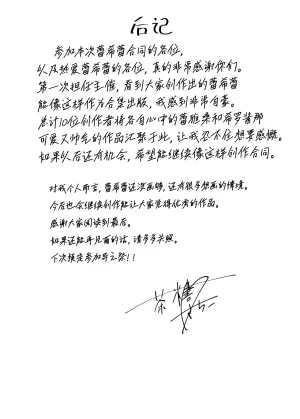 后记
参加本次蕾希蕾合同的各位，
以及热爱蕾希蕾的各位，真的非常感谢你们。
第一次担任主催，看到大家创作出的蕾希蕾
能像这样作为合集出版，我感到非常自豪。
总计10位创作者将各自心中的蕾维东和希罗普那
可爱又帅气的作品汇聚于此，让我忍不住想要感慨。
如果以后还有机会，希望能继续像这样创作合同。
对我个人而言，蕾希蕾还没画够，还有很多想画的情境。
今后也会继续创作能让大家觉得优秀的作品。
感谢大家阅读到最后。
如果还能再见面的话，请多多关照。
下次预定参加
茶糖